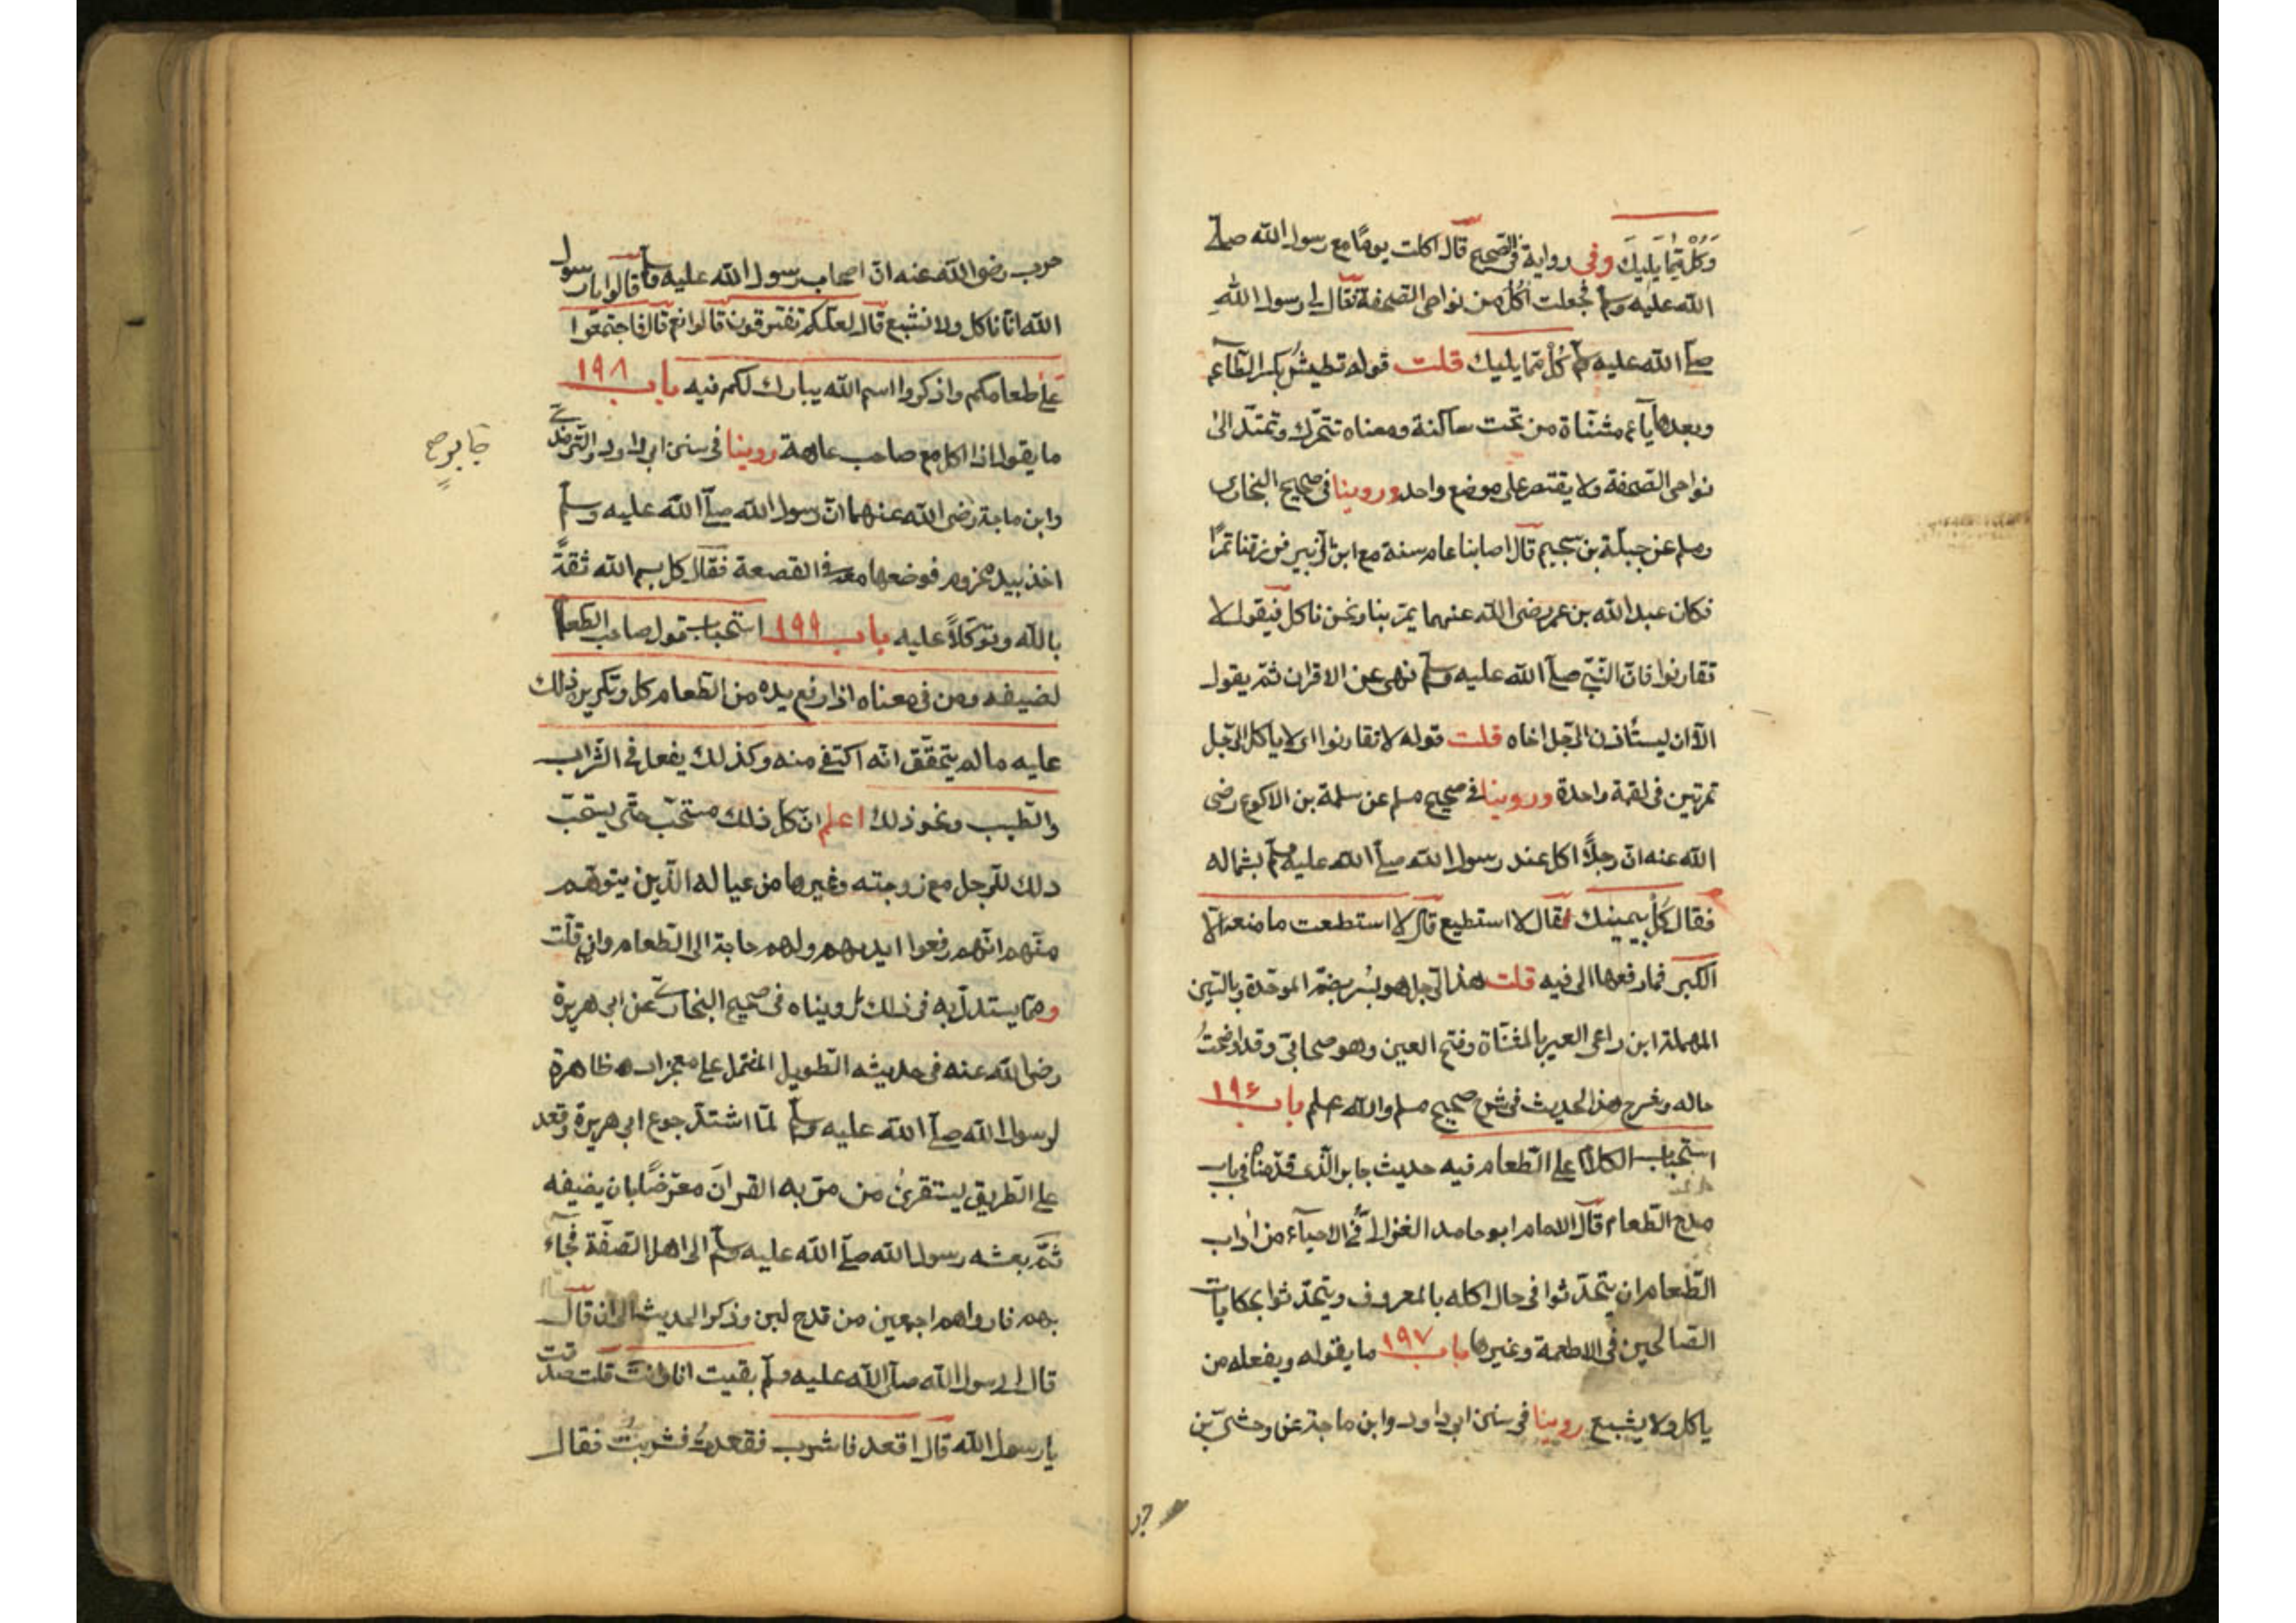 وَكُلْ مِمَّا يَلِيكَ وفي رواية في الصحيح قال اكلت يومًا مع رسول الله صلى
الله عليه وسلم فجعلت آكُلُ من نواحي الصّحفة فقال لي رسول اللهِ
صلى الله عليه وسلم كُلْ ممّا يليك قلت قوله تطيشُ بكسر الطآء
وبعدها يآء مثنّاة من تحت ساكنة ومعناه تتحرّك وتمتدّ الى
نواحي الصّحفة ولا يقتصر على موضع واحد وروينا في صحيح البخاري
ومسلم عن جبلة بن سحيم قال اصابنا عام سنة مع ابن الزّبير فرزقنا تمرًا
فكان عبد الله بن عمر رضى الله عنهما يمرّ بنا ونحن ناكل فيقول لا
تقارنوا فانّ النّبي صلى الله عليه وسلم نهى عن الاقران ثمّ يقول
الّا ان يستأذن الرّجل اخاه قلت قوله لا تقارنوا اى لا ياكل الرّجل
تمرتين في لقمة واحدة وروينا في صحيح مسلم عن سلمة بن الاكوع رضى
الله عنه انّ رجلًا اكل عند رسول الله صلى الله عليه وسلم بشماله
فقال كُلْ بيمينك فقال لا استطيع قال لا استطعت ما منعه الّا
الكبر فما رفعها الى فيه قلت هذا الرّجل هو بُسر بضمّ الموحّدة وبالسّين
المهملة ابن راعى العير بالمثنّاة وفتح العين وهو صحابيّ وقد اوضحتُ
حاله وشرح هذا الحديث في شرح صحيح مسلم والله اعلم باب ١٩٦
استحباب الكلام على الطّعام فيه حديث جابر الّذى قدّمناه في باب
مدح الطّعام قال الامام ابو حامد الغزالىّ في الاحيآء من اداب
الطّعام ان يتحدّثوا في حال اكله بالمعروف ويتحدّثوا بحكايات
الصّالحين في الاطعمة وغيرها باب ١٩٧ ما يقوله ويفعله من
ياكل ولا يشبع روينا في سنن ابى داود وابن ماجة عن وحشىّ بن
حر
حرب رضى الله عنه انّ اصحاب رسول الله عليه وسلم قالوا يا رسول
الله انّا ناكل ولا نشبع قال لعلّكم تفترقون قالوا نعم قال فاجتمعوا
على طعامكم واذكروا اسم الله يبارك لكم فيه باب ١٩٨
ما يقول اذا اكل مع صاحب عاهة روينا في سنن ابى داود والتّرمذى
وابن ماجة رضى الله عنهما انّ رسول الله صلى الله عليه وسلم
اخذ بيد مجزوم فوضعها معه في القصعة فقال كل بسم الله ثقةً
بالله وتوكّلًا عليه باب ١٩٩ استحباب قول صاحب الطعام
لضيفه ومن في معناه اذا رفع يده من الطّعام كل وتكرير ذلك
عليه ما لم يتحقّق انّه اكتفى منه وكذلك يفعل في الشّراب
والطّيب ونحو ذلك اعلم انّ كلّ ذلك مستحّب حتّى يستحبّ
ذلك للرّجل مع زوجته وغيرها من عياله الّذين يتوهّم
منهم انّهم رفعوا ايديهم ولهم حاجة الى الطّعام وان قلّت
وممّا يستدلّ به في ذلك ما رويناه في صحيح البخارى عن ابى هريرة
رضى الله عنه في حديثه الطّويل المشتمل على معجزات ظاهرة
لرسول الله صلى الله عليه وسلم لمّا اشتدّ جوع ابى هريرة وقعد
على الطّريق ليستقرئ من مرّ به القرآن معرّضًا بان يضيفه
ثمّ بعثه رسول الله صلى الله عليه وسلم الى اهل الصّفّة فجآء
بهم فارواهم اجمعين من قدح لبن وذكر الحديث الى ان قال
قال لى رسول الله صلى الله عليه وسلم بقيت انا وانت قلت صدقت
يا رسول الله قال اقعد فاشرب فقعدتُ فشربتُ فقال